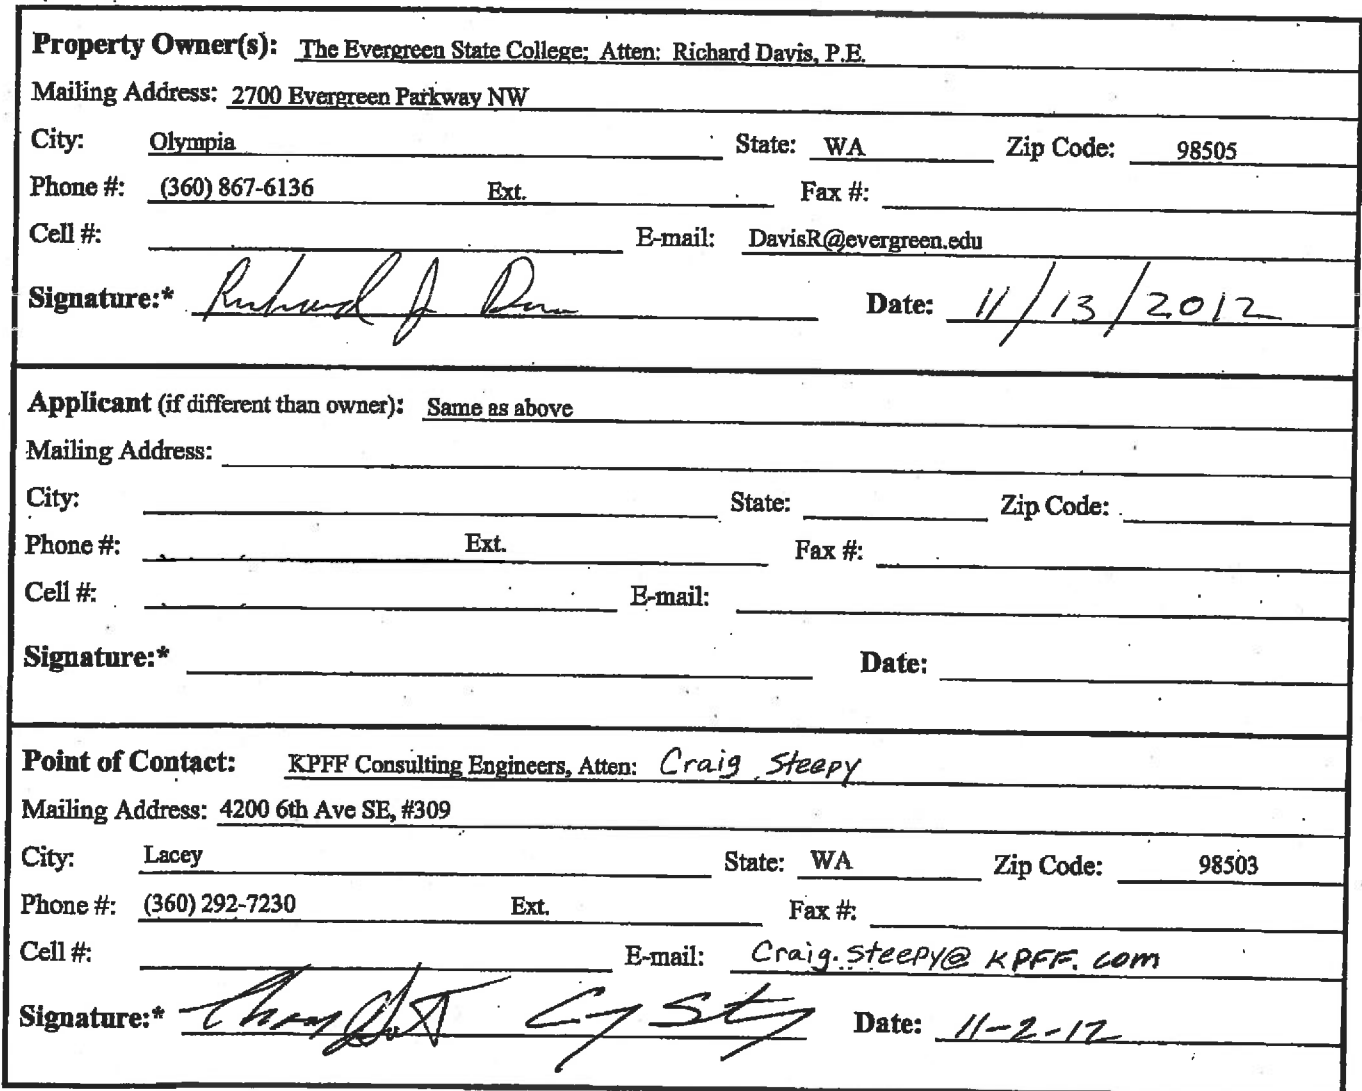 Property Owner(s): The Evergreen State College; Atten: Richard Davis, P.E.
Mailing Address: 2700 Evergreen Parkway NW
City: Olympia State: WA Zip Code: 98505
Phone #: (360) 867-6136 Ext. Fax #:
Cell #: E-mail: DavisR@evergreen.edu
Signature:* Richard J Date: 11/13/2012
Applicant (if different than owner): Same as above
Mailing Address:
City: State: Zip Code:
Phone #: Ext. Fax #:
Cell #: E-mail:
Signature:* Date:
Point of Contact: KPFF Consulting Engineers, Atten: Craig Steepy
Mailing Address: 4200 6th Ave SE, #309
City: Lacey State: WA Zip Code: 98503
Phone #: (360) 292-7230 Ext. Fax #:
Cell #: E-mail: Craig.steepy@KPFF.com
Signature:* Date: 11-2-12